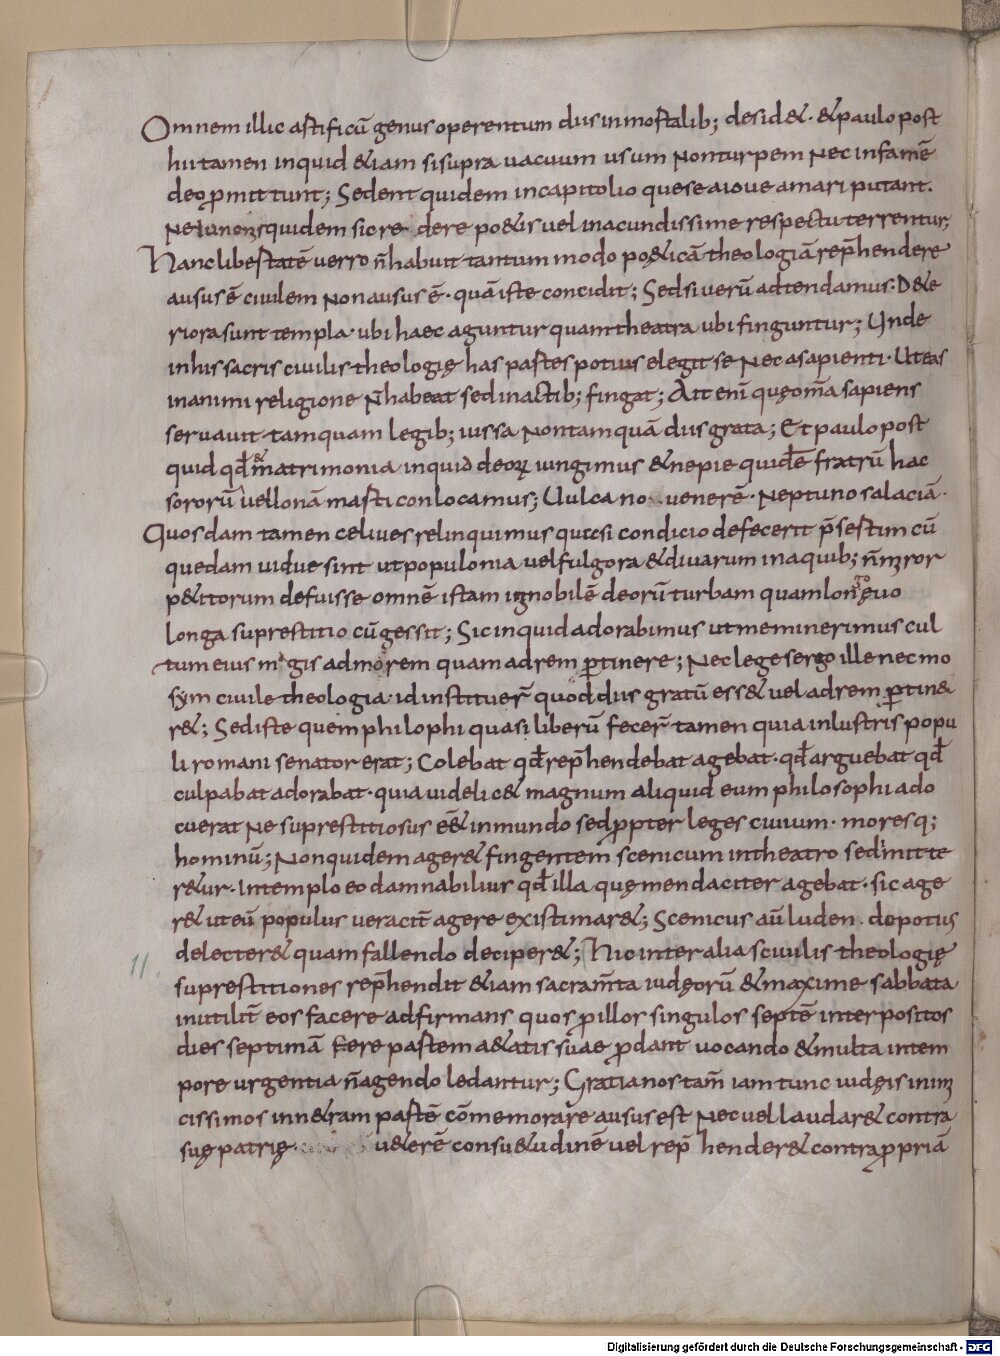 Omnem illic astificū genus operentum diis inmostalib; desid&. & paulo post
hii tamen inquid &iam sisupra uacuum usum Nonturpem Nec infamē
deo ꝑmittunt; Sedent quidem incapitolio que se aioue amari putant.
Ne iunonis quidem sic re dere po&is uel iracundissime respectu terrentur;
Hanc libestatē uerro n̄ habuit tantum modo po&icā theologiā rep̄hendere
ausus ē ciuilem Non ausus ē. quā iste concidit; Sed si uerū adtendamus. D&e
riora sunt templa. ubi haec aguntur quam theatra ubi finguntur; Unde
inhis sacris ciuilis theologię has pastes potius elegit se Nec a sapienti. Ut eas
inanimi religione N̄ habeat sed inactib; fingat; Ait enī quę om̄a sapiens
seruauit. tamquam legib; iussa Nontamquā diis grata; Et paulo post
quid qđ & matrimonia inquid deoꝝ iungimus & nepie quidē fratrū hac
sororū uellonā masti conlocamus; Uulcano uenerē. Neptuno salaciā.
Quosdam tamen celiues relinquimus quasi condicio defecerit p̄sestim cū
quedam uidue sint ut populonia uel fulgora & diuarum inaquib; n̄ miror
p&ittorum defuisse omnē istam ignobilē deorū turbam quam longęuo
longa suprestitio cūgessit; Sic inquid adorabimus ut meminerimus cul
tum eius magis admorem quam adrem ꝑtinere; Nec leges ergo ille nec mo
sym ciuile theologia. id instituer̄ quod diis gratū ess& uel adrem ꝑtine
r&; Sed iste quem philophi quasi liberū fecer̄ tamen quia inlustris popu
li romani senator erat; Colebat qđ rep̄hendebat agebat. qđ arguebat qđ
culpabat adorabat. quia uidelic& magnum aliquid eum philosophi ado
cuerat Ne suprestitiosus eē& inmundo sed ꝓpter leges ciuium. moresq;
hominū; Nonquidem ager& fingentem scenicum intheatro sed mitte
r&ur. Intemplo eo damnabiliur qđ illa quę mendaciter agebat. sic age
r& ut eū populus ueracit̄ agere existimar&; Scenicus aū luden do potius
delecter& quam fallendo deciper&; Hic inter alias ciuilis theologię
11.
suprestitiones rep̄hendit &iam sacram̄ta iudęorū & maxime sabbata
inutilit̄ eos facere adfirmans quos ꝑ illos singulos septē interpositos
dies septimā fere pastem a&atis suae ꝑdant uocando & multa intem
pore urgentia n̄ agendo ledantur; Gratianos tam̄ iam tunc iudęis inim
cissimos inn&ram pastē cōmemorare ausus est Nec uel laudar& contra
suę patrię u&erē consu&udinē uel rep̄ hender& contra ꝓpriā
Digitalisierung gefördert durch die Deutsche Forschungsgemeinschaft - DFG